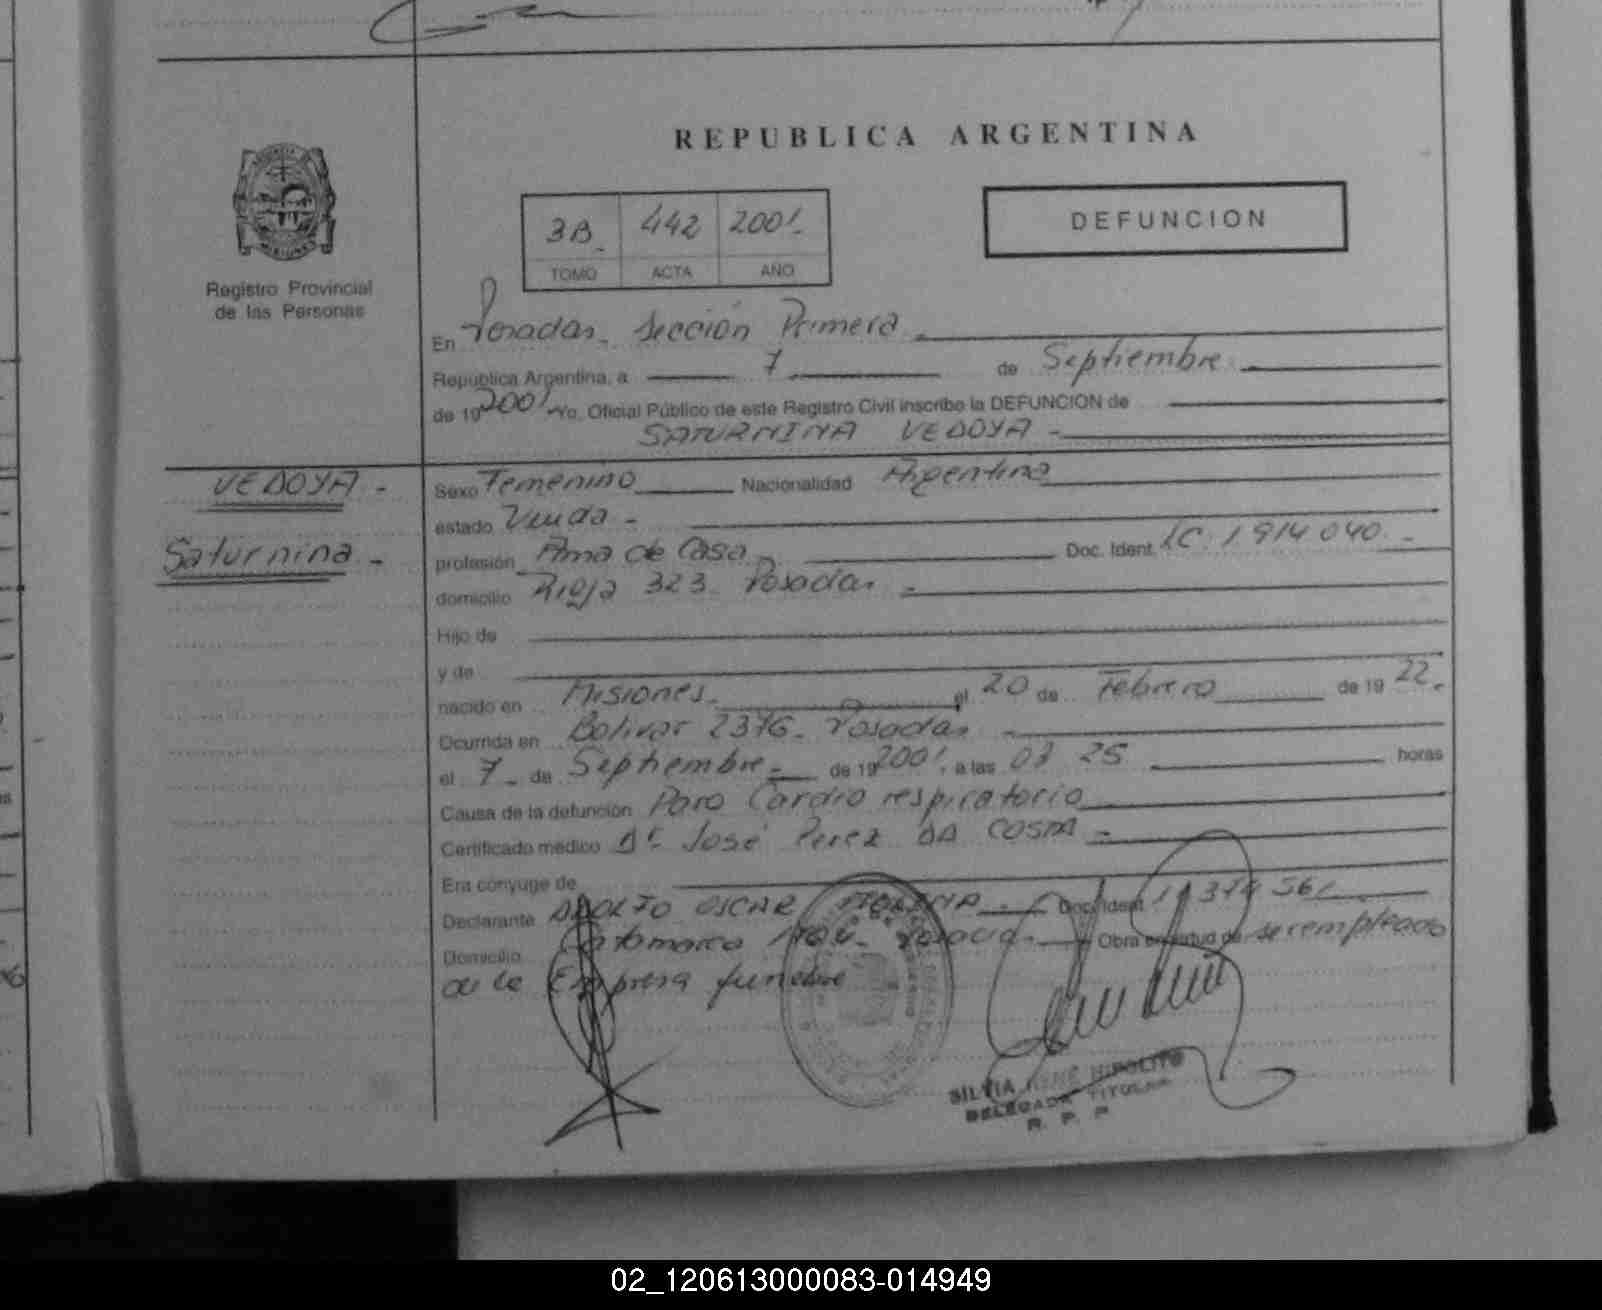 REPUBLICA ARGENTINA
3B 442 2001
TOMO ACTA AÑO
DEFUNCION
Registro Provincial
de las Personas
En Posadas. Sección Primera
Republica Argentina, a 7 de Septiembre
de 19 2001 Yo, Oficial Público de este Registro Civil inscribo la DEFUNCION de
SATURNINA VEDOYA
VEDOYA
Saturnina
Sexo Femenino Nacionalidad Argentina
estado Viuda
profesión Ama de Casa Doc. Ident. LC. 1914040
domicilio Rioja 323. Posadas
Hijo de
y de
nacido en Misiones. el 20 de Febrero de 19 22.
Ocurrida en Bolivar 2376. Posadas
el 7 de Septiembre de 19 2001, a las 03 25 horas
Causa de la defunción Paro Cardio respiratorio
Certificado médico Dr. José Perez DA COSTA
Era cónyuge de
Declarante ADOLFO OSCAR Doc. Ident
Domicilio Catamarca Posadas. Obra en virtud de ser empleado
de la Empresa funebre
SILVIA IRENE HIPOLITO
DELEGADA TITULAR
R. P. P.
02_120613000083-014949